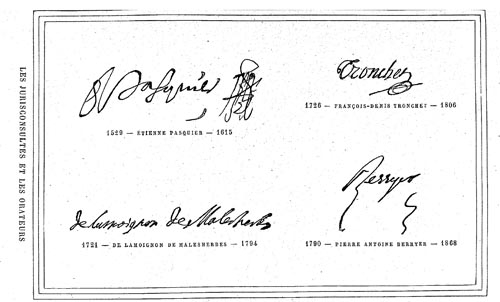 LES JURISCONSULTES ET LES ORATEURS
Pasquier
1529 — ETIENNE PASQUIER — 1615
Tronchet
1726 — FRANÇOIS-DENIS TRONCHET — 1806
de Lamoignon de Malesherbes
1721 — DE LAMOIGNON DE MALESHERBES — 1794
Berryer
1790 — PIERRE ANTOINE BERRYER — 1868